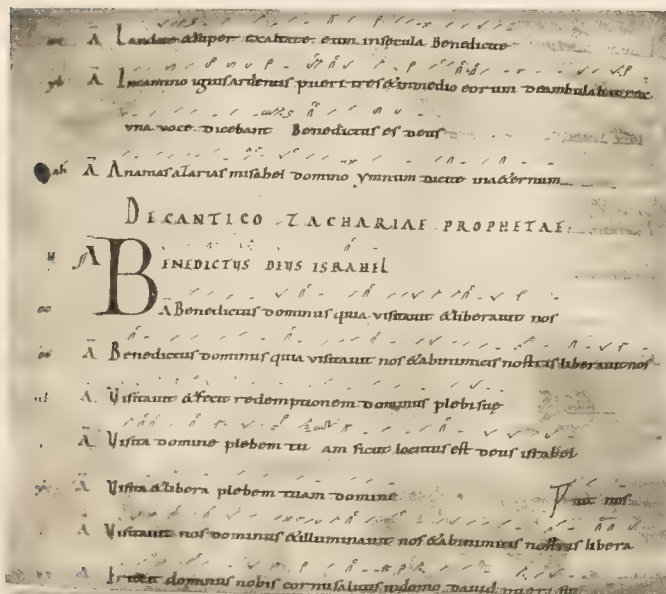 Ā Laudate & super exaltate eum insęcula Benedicite
Ā Incamino ignis ardentis pueri tres & inmedio eorum deambulab
una voce dicebant Benedictus es deus
Ā Anania azarias misahel domino ymnum dicite inaeternum
DE CANTICO ZACHARIAE PROPHETAE.
Ā BENEDICTUS DEUS ISRAHEL
Ā Benedictus dominus quia visitavit & liberavit nos
Ā Benedictus dominus quia visitavit nos & abinimicis nostris liberavit nos
Ā Visitavit & fecit redemptionem dominus plebi suę
Ā Visita domine plebem tu am sicut locutus est deus israhel
Ā Visita & libera plebem tuam domine
nos
Ā Visitavit nos dominus & illuminavit nos & abinimicis nostris libera
Ā Erexit dominus nobis cornu salutis indomo david pueri sui